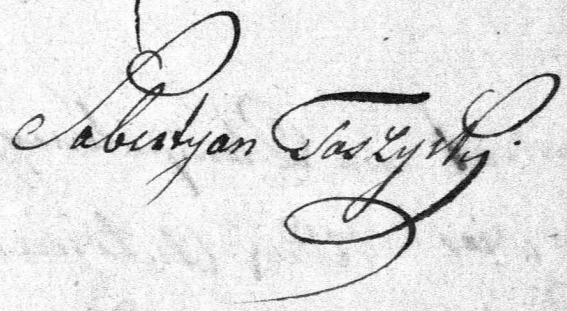 Sabestyan Taszycki